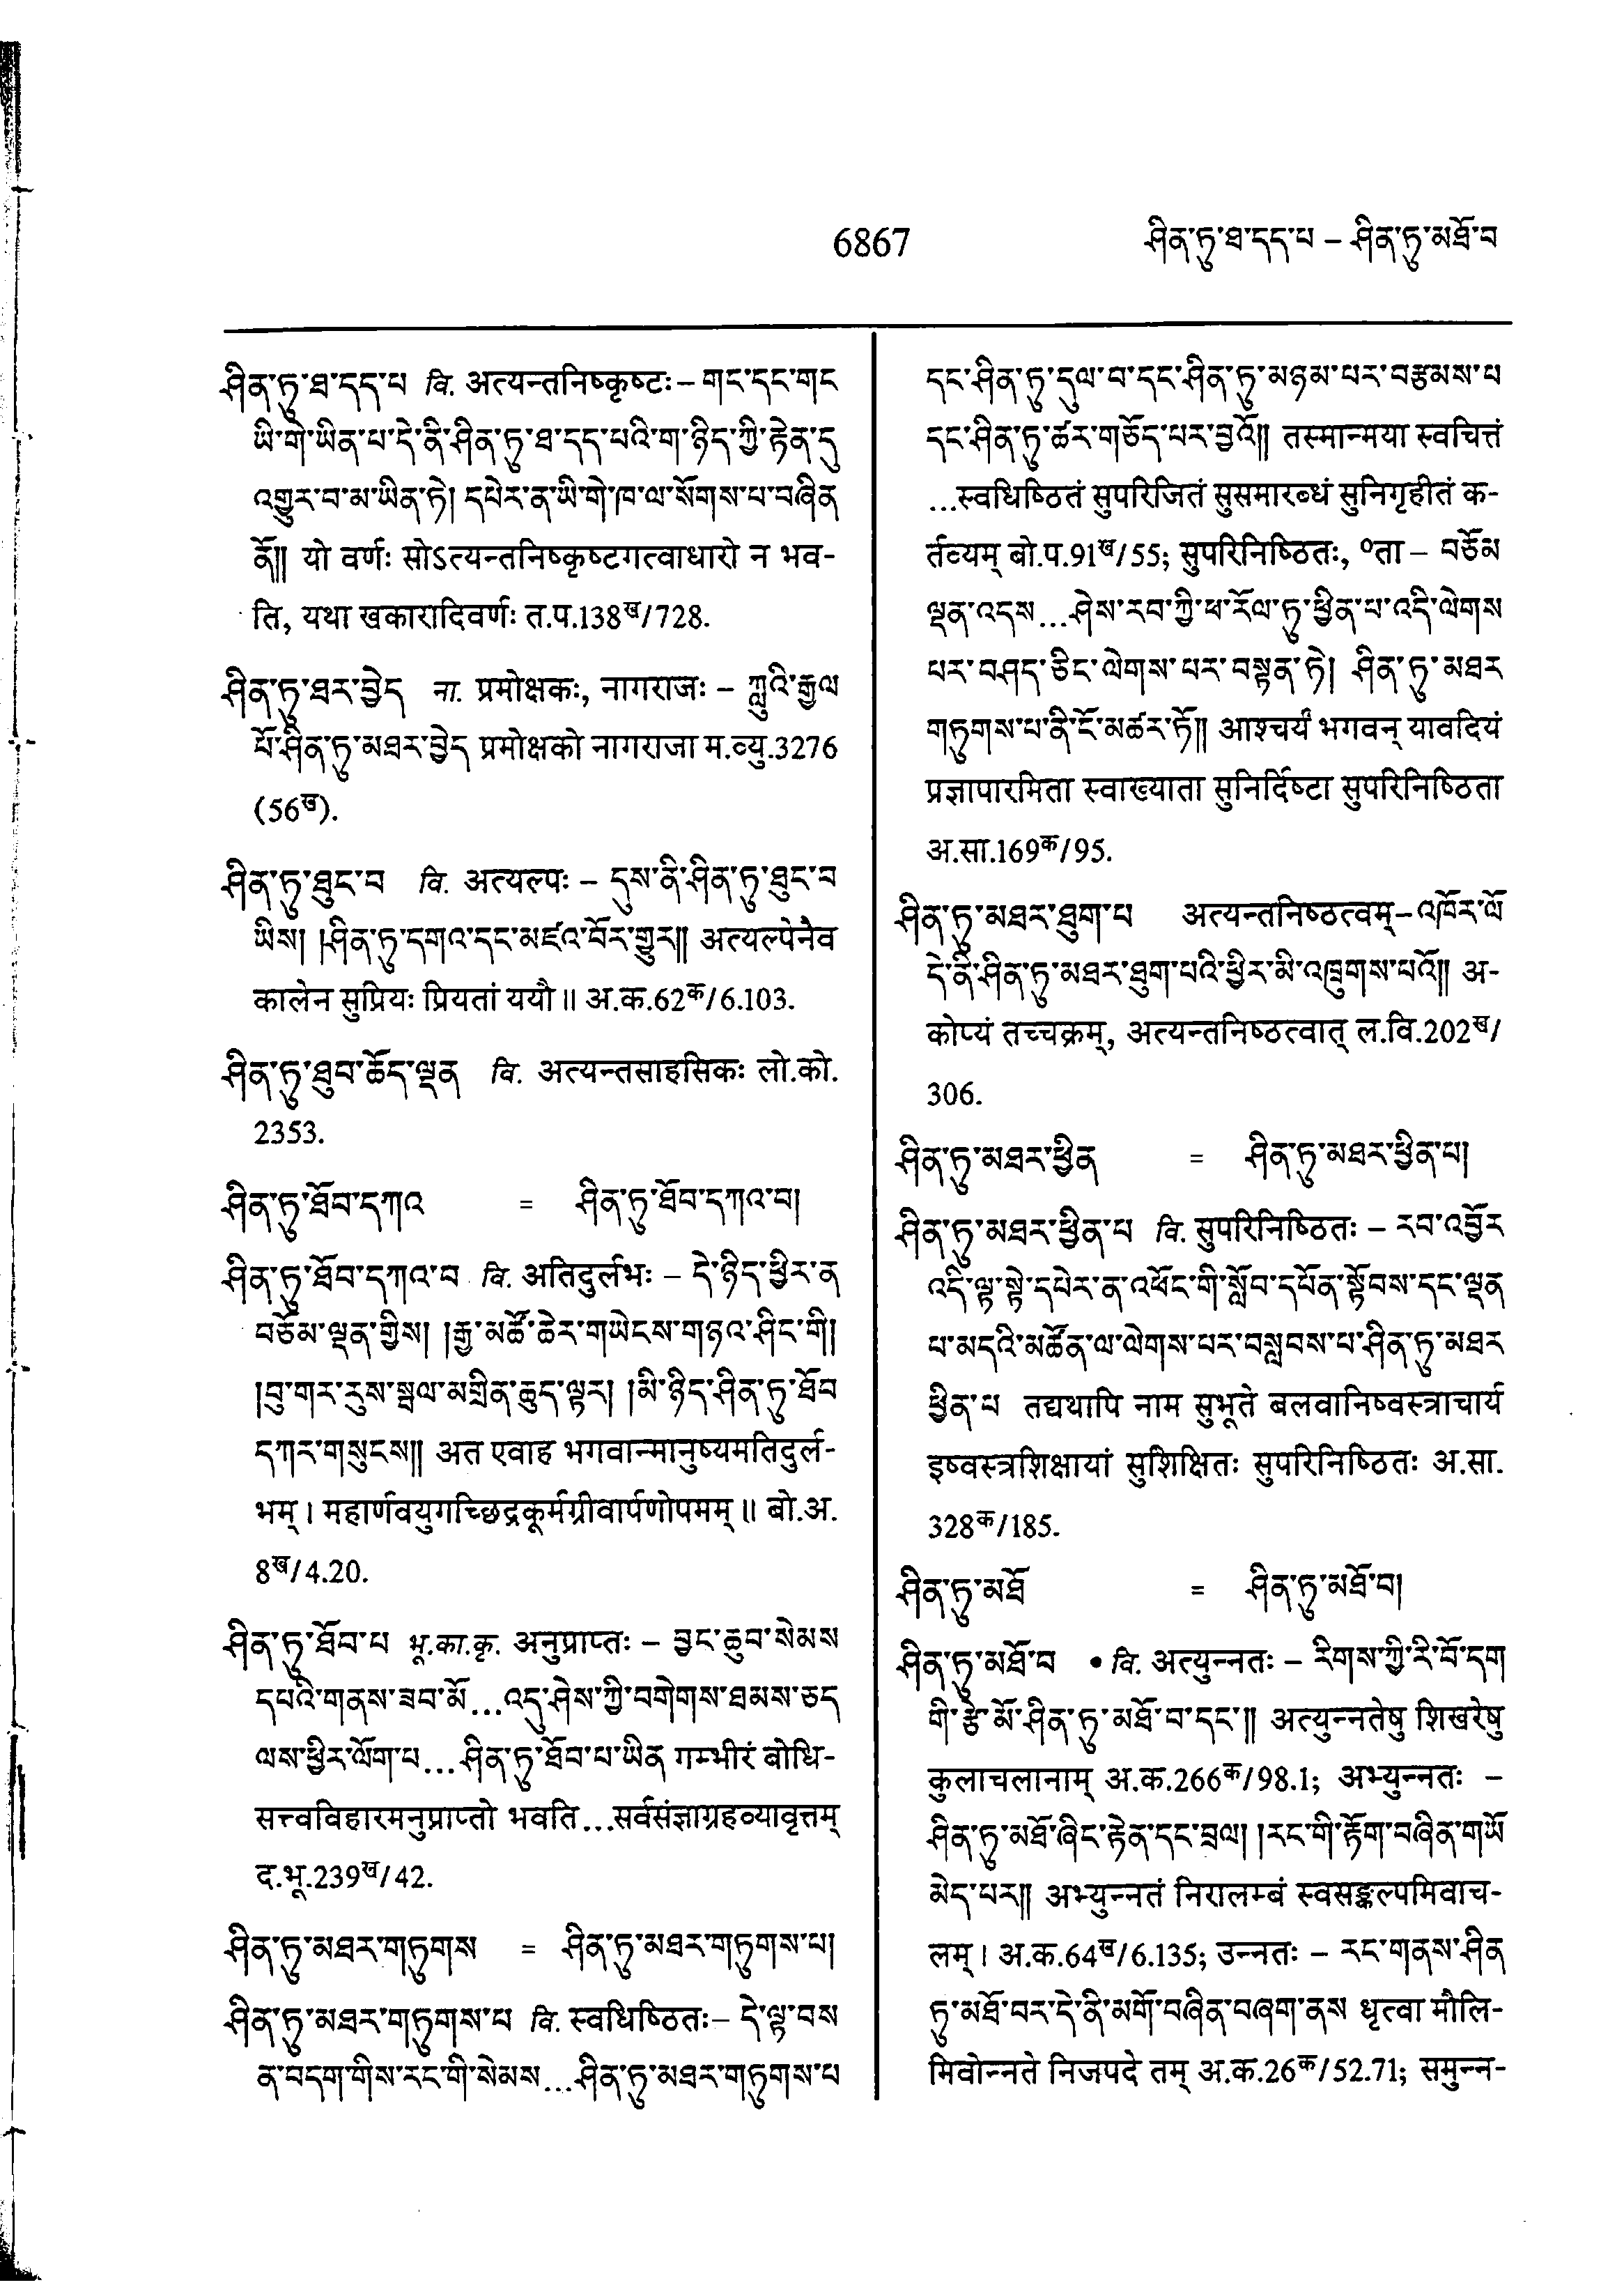 6867
ཤིན་ཏུ་ཐ་དད་པ – ཤིན་ཏུ་མཐོ་བ
ཤིན་ཏུ་ཐ་དད་པ वि. अत्यन्तनिष्कृष्टः – གང་དང་གང
ཡི་གེ་ཡིན་པ་དེ་ནི་ཤིན་ཏུ་ཐ་དད་པའི་ག་ཉིད་ཀྱི་རྟེན་དུ
འགྱུར་བ་མ་ཡིན་ཏེ། དཔེར་ན་ཡི་གེ་ཁ་ལ་སོགས་པ་བཞིན
ནོ།། यो वर्णः सोऽत्यन्तनिष्कृष्टगत्वाधारो न भव-
ति, यथा खकारादिवर्णः त.प.138ख/728.
ཤིན་ཏུ་ཐར་བྱེད ना. प्रमोक्षकः, नागराजः – ཀླུའི་རྒྱལ
པོ་ཤིན་ཏུ་མཐར་བྱེད प्रमोक्षको नागराजा म.व्यु.3276
(56ख).
ཤིན་ཏུ་ཐུང་བ वि. अत्यल्पः – དུས་ནི་ཤིན་ཏུ་ཐུང་བ
ཡིས། །ཤིན་ཏུ་དགའ་དང་མཛའ་བོར་གྱུར།། अत्यल्पेनैव
कालेन सुप्रियः प्रियतां ययौ ॥ अ.क.62क/6.103.
ཤིན་ཏུ་ཐུབ་ཆོད་ལྡན वि. अत्यन्तसाहसिकः लो.को.
2353.
ཤིན་ཏུ་ཐོབ་དཀའ = ཤིན་ཏུ་ཐོབ་དཀའ་བ།
ཤིན་ཏུ་ཐོབ་དཀའ་བ वि. अतिदुर्लभः – དེ་ཉིད་ཕྱིར་ན
བཅོམ་ལྡན་གྱིས། །རྒྱ་མཚོ་ཆེར་གཡེངས་གཉའ་ཤིང་གི།
།བུ་གར་རུས་སྦལ་མགྲིན་ཆུད་ལྟར། །མི་ཉིད་ཤིན་ཏུ་ཐོབ
དཀར་གསུངས།། अत एवाह भगवान्मानुष्यमतिदुर्ल-
भम् । महार्णवयुगच्छिद्रकूर्मग्रीवार्पणोपमम् ॥ बो.अ.
8ख/4.20.
ཤིན་ཏུ་ཐོབ་པ भू.का.कृ. अनुप्राप्तः – བྱང་ཆུབ་སེམས
དཔའི་གནས་ཟབ་མོ...འདུ་ཤེས་ཀྱི་བགེགས་ཐམས་ཅད
ལས་ཕྱིར་ལོག་པ...ཤིན་ཏུ་ཐོབ་པ་ཡིན गम्भीरं बोधि-
सत्त्वविहारमनुप्राप्तो भवति...सर्वसंज्ञाग्रहव्यावृत्तम्
द.भू.239ख/42.
ཤིན་ཏུ་མཐར་གཏུགས = ཤིན་ཏུ་མཐར་གཏུགས་པ།
ཤིན་ཏུ་མཐར་གཏུགས་པ वि. स्वधिष्ठितः – དེ་ལྟ་བས
ན་བདག་གིས་རང་གི་སེམས...ཤིན་ཏུ་མཐར་གཏུགས་པ
དང་ཤིན་ཏུ་དུལ་བ་དང་ཤིན་ཏུ་མཉམ་པར་བརྩམས་པ
དང་ཤིན་ཏུ་ཚར་གཅོད་པར་བྱའོ།། तस्मान्मया स्वचित्तं
...स्वधिष्ठितं सुपरिजितं सुसमारब्धं सुनिगृहीतं क-
र्तव्यम् बो.प.91ख/55; सुपरिनिष्ठितः, ºता – བཅོམ
ལྡན་འདས...ཤེས་རབ་ཀྱི་ཕ་རོལ་ཏུ་ཕྱིན་པ་འདི་ལེགས
པར་བཤད་ཅིང་ལེགས་པར་བསྟན་ཏེ། ཤིན་ཏུ་མཐར
གཏུགས་པ་ནི་ངོ་མཚར་ཏོ།། आश्चर्यं भगवन् यावदियं
प्रज्ञापारमिता स्वाख्याता सुनिर्दिष्टा सुपरिनिष्ठिता
अ.सा.169क/95.
ཤིན་ཏུ་མཐར་ཐུག་པ अत्यन्तनिष्ठत्वम् – འཁོར་ལོ
དེ་ནི་ཤིན་ཏུ་མཐར་ཐུག་པའི་ཕྱིར་མི་འཁྲུགས་པའོ།། अ-
कोप्यं तच्चक्रम्, अत्यन्तनिष्ठत्वात् ल.वि.202ख/
306.
ཤིན་ཏུ་མཐར་ཕྱིན = ཤིན་ཏུ་མཐར་ཕྱིན་པ།
ཤིན་ཏུ་མཐར་ཕྱིན་པ वि. सुपरिनिष्ठितः – རབ་འབྱོར
འདི་ལྟ་སྟེ་དཔེར་ན་འཕོང་གི་སློབ་དཔོན་སྟོབས་དང་ལྡན
པ་མདའི་མཚོན་ལ་ལེགས་པར་བསླབས་པ་ཤིན་ཏུ་མཐར
ཕྱིན་པ तद्यथापि नाम सुभूते बलवानिष्वस्त्राचार्य
इष्वस्त्रशिक्षायां सुशिक्षितः सुपरिनिष्ठितः अ.सा.
328क/185.
ཤིན་ཏུ་མཐོ = ཤིན་ཏུ་མཐོ་བ།
ཤིན་ཏུ་མཐོ་བ • वि. अत्युन्नतः – རིགས་ཀྱི་རི་བོ་དག
གི་རྩེ་མོ་ཤིན་ཏུ་མཐོ་བ་དང་།། अत्युन्नतेषु शिखरेषु
कुलाचलानाम् अ.क.266क/98.1; अभ्युन्नतः –
ཤིན་ཏུ་མཐོ་ཞིང་རྟེན་དང་བྲལ། །རང་གི་རྟོག་བཞིན་གཡོ
མེད་པར།། अभ्युन्नतं निरालम्बं स्वसङ्कल्पमिवाच-
लम् । अ.क.64ख/6.135; उन्नतः – རང་གནས་ཤིན
ཏུ་མཐོ་བར་དེ་ནི་མགོ་བཞིན་བཞག་ནས धृत्वा मौलि-
मिवोन्नते निजपदे तम् अ.क.26क/52.71; समुन्न-